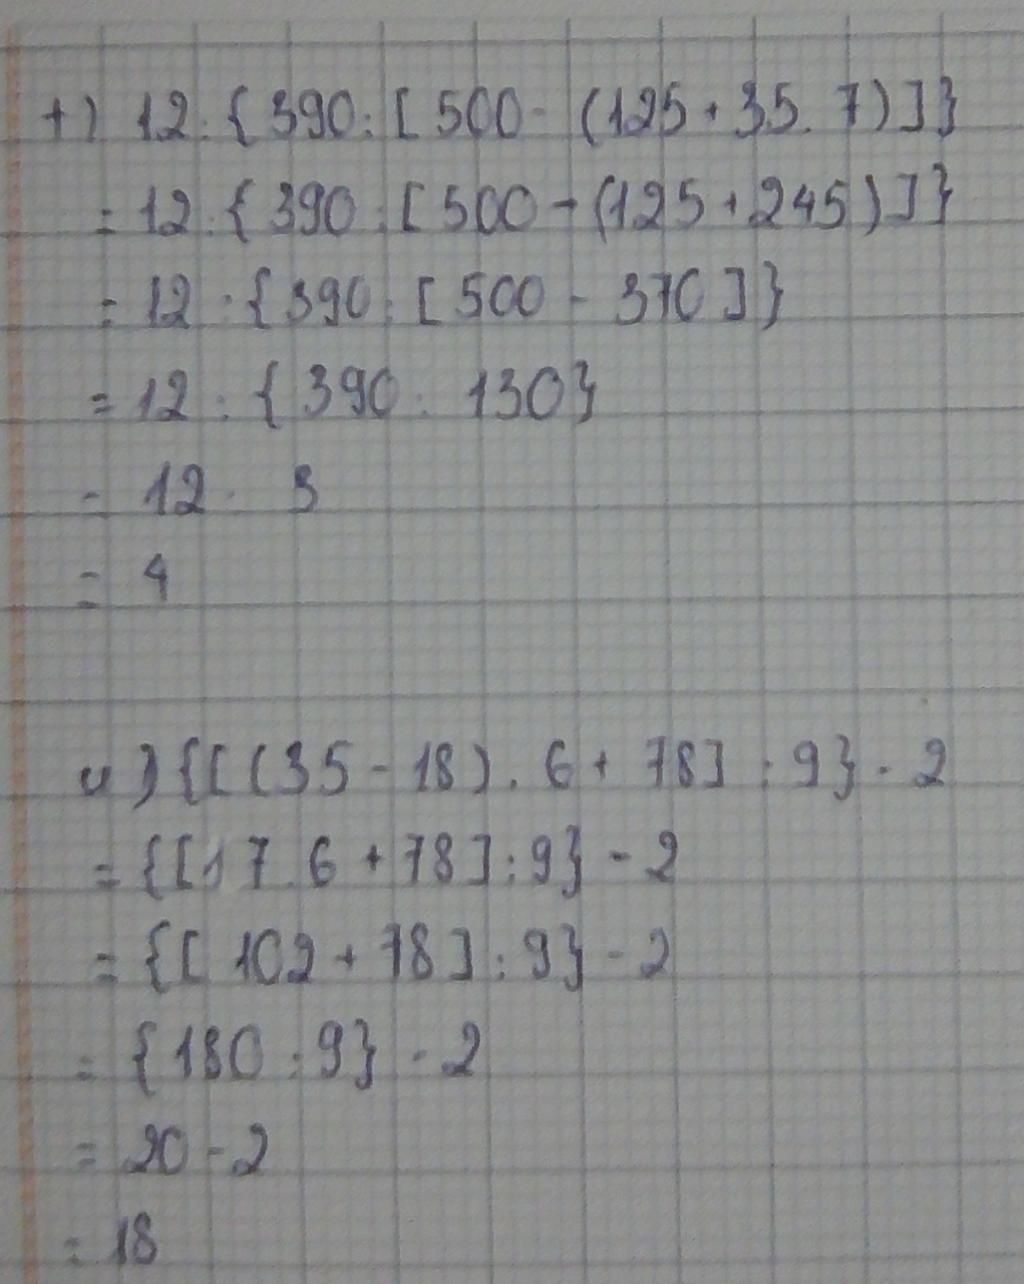 t) 12 : { 390 : [ 500 - (125 + 35 . 7) ] }
= 12 : { 390 : [ 500 - (125 + 245) ] }
= 12 : { 390 : [ 500 - 370 ] }
= 12 : { 390 : 130 }
= 12 : 3
= 4
u) { [ (35 - 18) . 6 + 78 ] : 9 } - 2
= { [ 17 . 6 + 78 ] : 9 } - 2
= { [ 102 + 78 ] : 9 } - 2
= { 180 : 9 } - 2
= 20 - 2
= 18